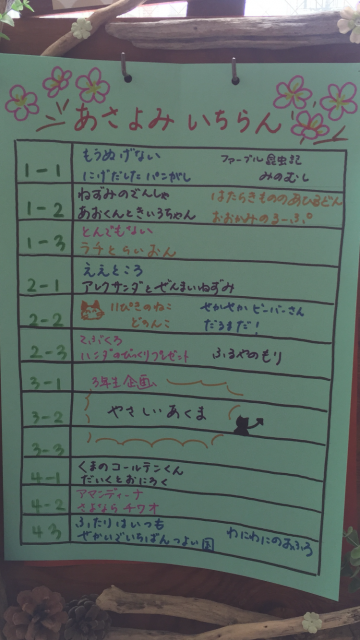 あさよみ いちらん
1-1
もうぬげない
ファーブル昆虫記
にげだしたパンがし
みのむし
1-2
ねずみのでんしゃ
はたらきもののあひるどん
あおくんときいろちゃん
おおかみのるーぷ。
1-3
とんでもない
ラチとらいおん
2-1
ええところ
アレクサンダとぜんまいねずみ
2-2
11ぴきのねこ
せかせかビーバーさん
どろんこ
だるまだ!
2-3
てぶくろ
ハンダのびっくりプレゼント
ふるやのもり
3-1
3年生企画
3-2
やさしいあくま
3-3
4-1
くまのコールテンくん
だいくとおにろく
4-2
アマンディーナ
さよならチワオ
4-3
ふたりはいつも
わにわにのおふろ
せかいでいちばんつよい国